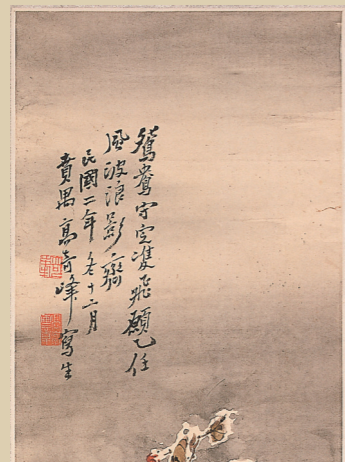 鴛鴦守定雙飛願一任
風波浪影齊
民國二年冬十二月
番禺高奇峰寫生